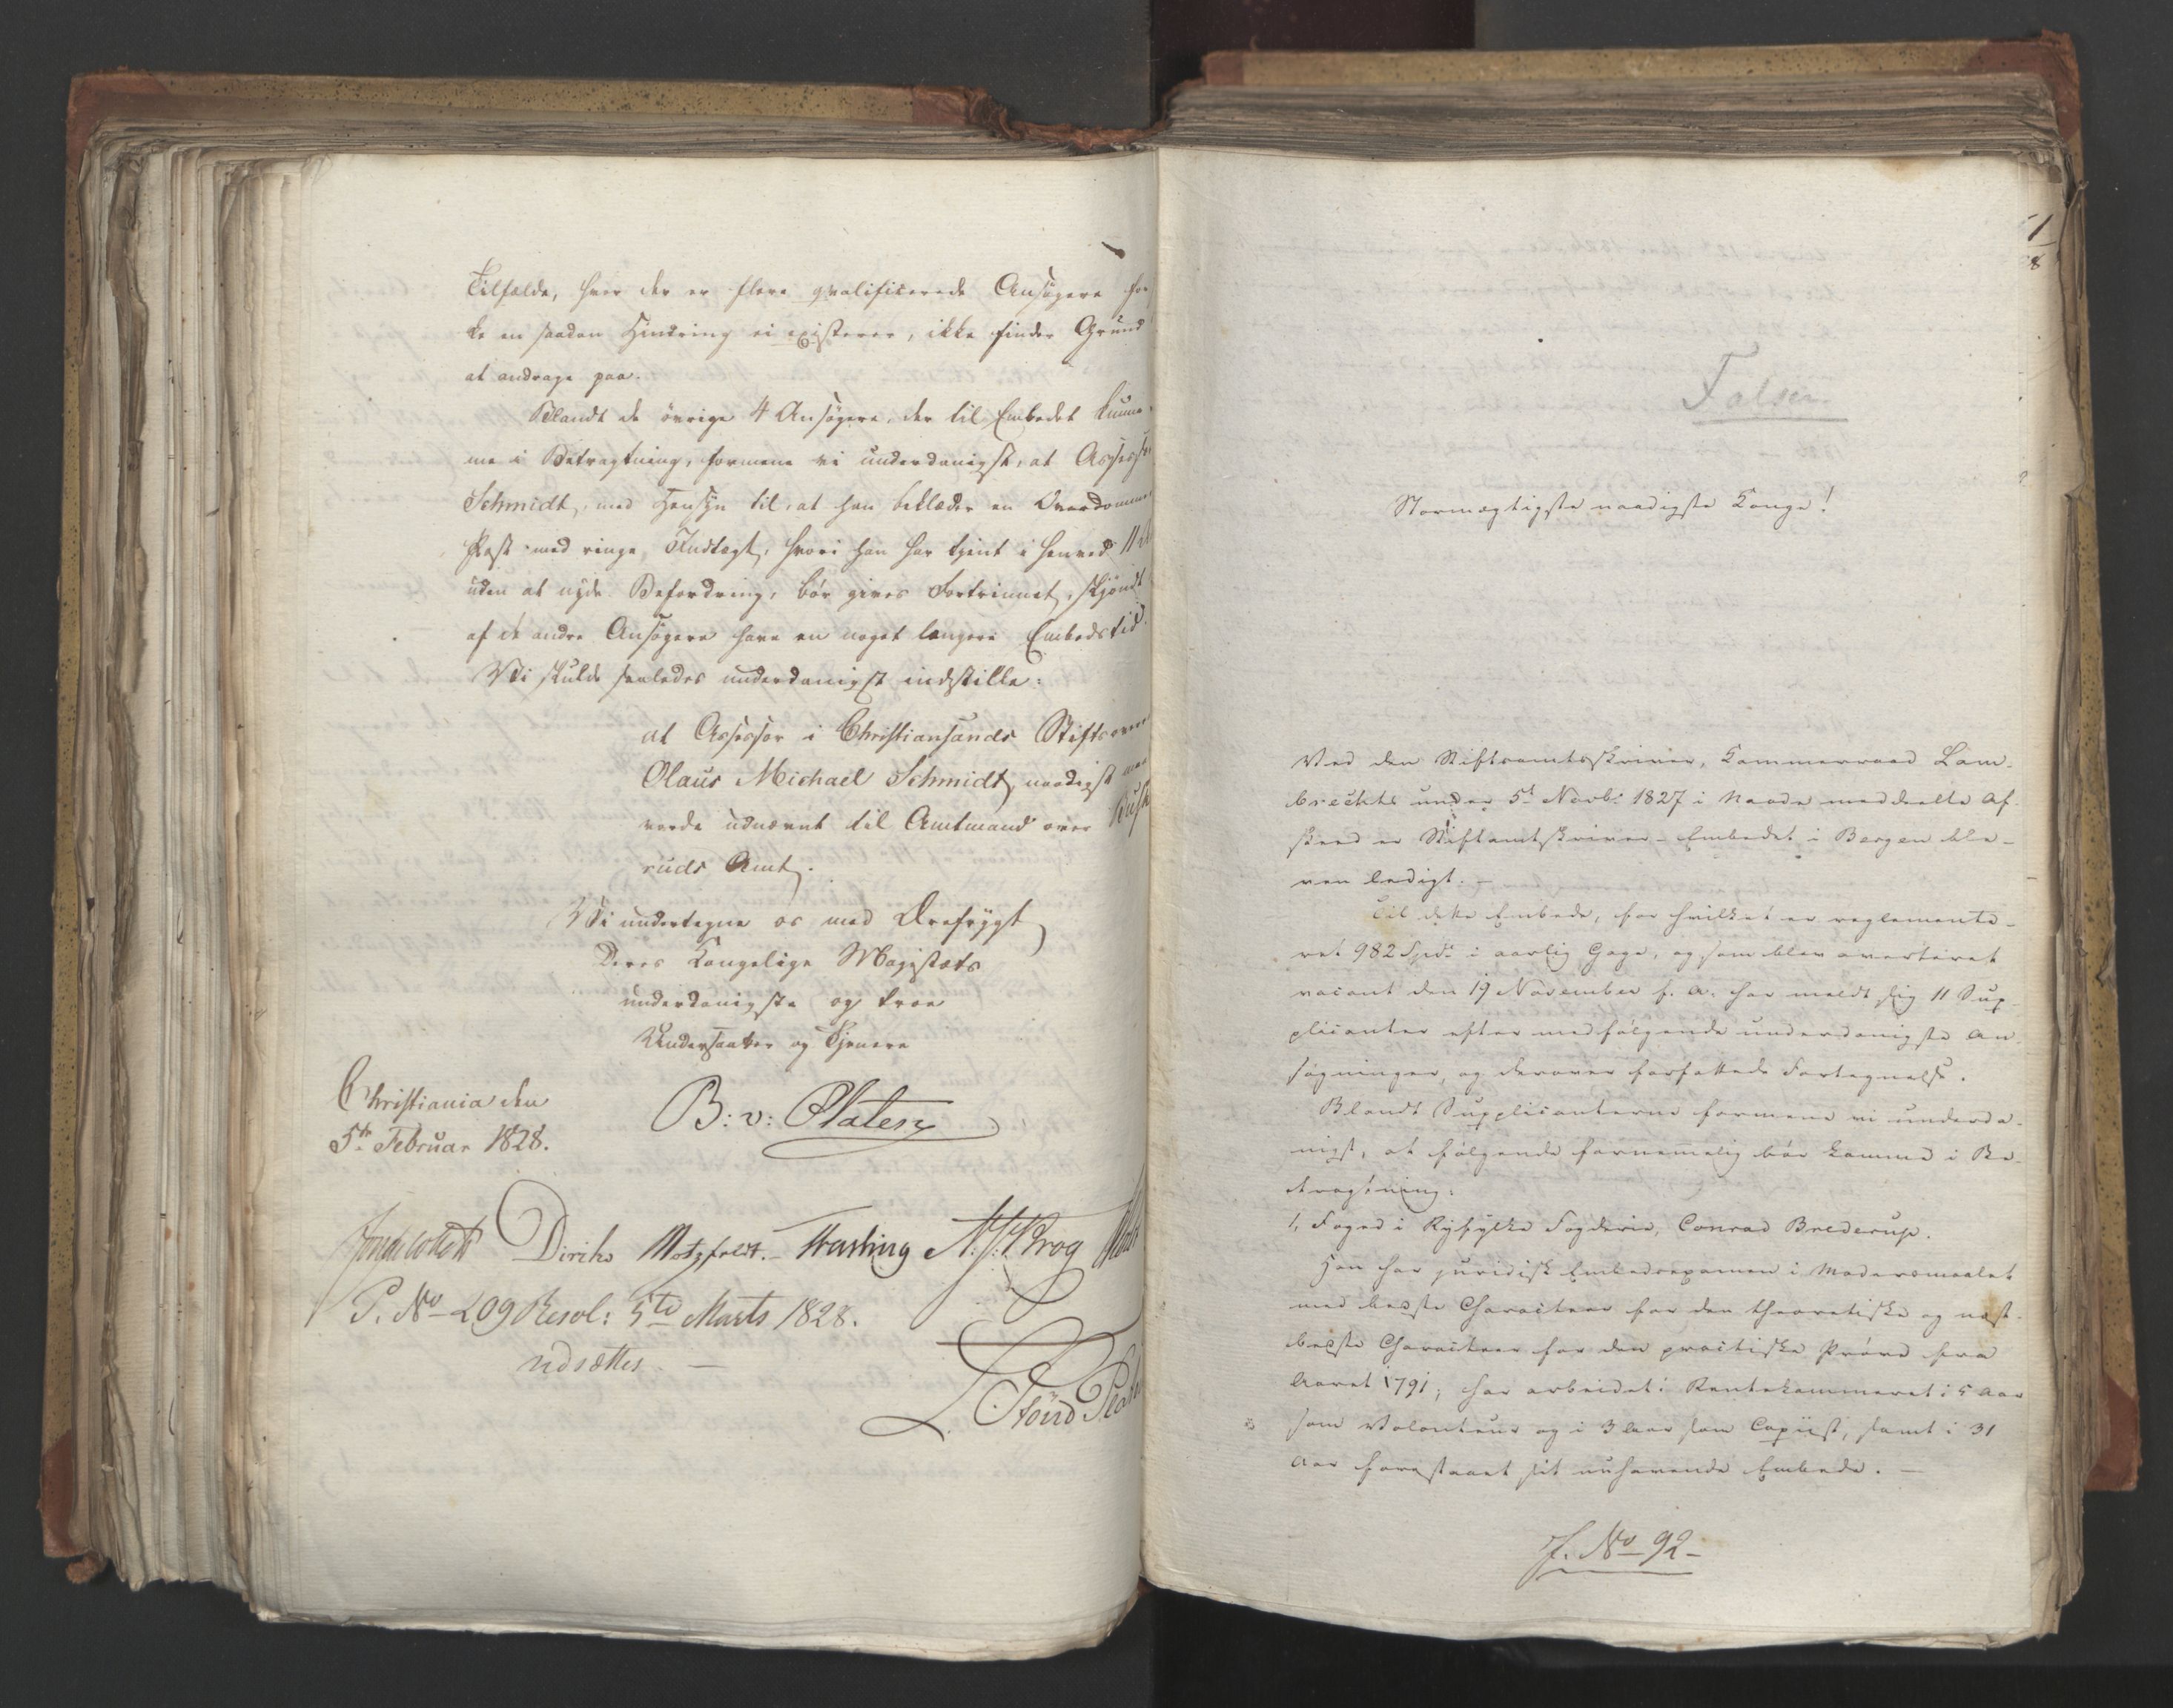 Tilfælde, hvor der er flere qvalificerede Ansøgere for
en saadan Hindring ei existerer, ikke finder Grund
at andrage paa.
Blandt de övrige 4 Ansøgere, der til Embedet kunne
me i Betragtning, formene vi underdanigst, at Assessor
Schmidt, med Hensyn til, at han beklæder en Overdommer
Post med ringe Indtægt, hvori han har tjent i henved 11
uden at nyde Befordring, bör gives Fortrinnet, skjöndt
af de andre Ansøgere have en noget længere Embedstid.
Vi skulde saaledes underdanigst indstille:
at Assessor i Christiansands Stiftsover
Olaus Michael Schmidt, naadigst maa
vorde udnævnt til Amtmand over Busk
ruds Amt.
Vi undertegne os med Ærefrygt
Deres Kongelige Majestæts
underdanigste og troe
Undersaatter og Tjenere
Christiania den
5te Februar 1828.
B: v: Platen
Diriks Motzfeldt. Fasting N: J: Krog
P. No 209 Resol: 5te Marts 1828.
udsættes. —
1
8
Falsen
Stormægtigste naadigste Konge!
Ved den Stiftsamtsskriver, Kammerraad Lam-
brechts under 5te Novbr 1827 i Naade meddeelte Af-
skeed er Stiftamtskriver-Embedet i Bergen ble-
ven ledigt. —
Til dette Embede, for hvilket er reglemente-
ret 982 Spd: i aarlig Gage, og som blev averteret
vacant den 19 November f. A. har meldt sig 11 Sup-
plicanter efter medfølgende underdanigste An-
søgninger, og derover forfattede Fortegnelse.
Blandt Supplicanterne formene vi underda-
nigst, at følgende fornemmelig bör komme i Be-
tragtning:
1, Foged i Ryfylke Fogderie, Conrad Brederup.
Han har juridisk Embedsexamen i Modersmaalet
med bedste Characteer for den theoretiske og næst-
bedste Characteer for den practiske Prøve fra
Aaret 1791; har arbeidet i Rentekammeret i 5 Aar
som Volonteur og i 3 Aar som Copiist, samt i 31
Aar forestaaet sit nuhavende Embede. —
J. No 92-